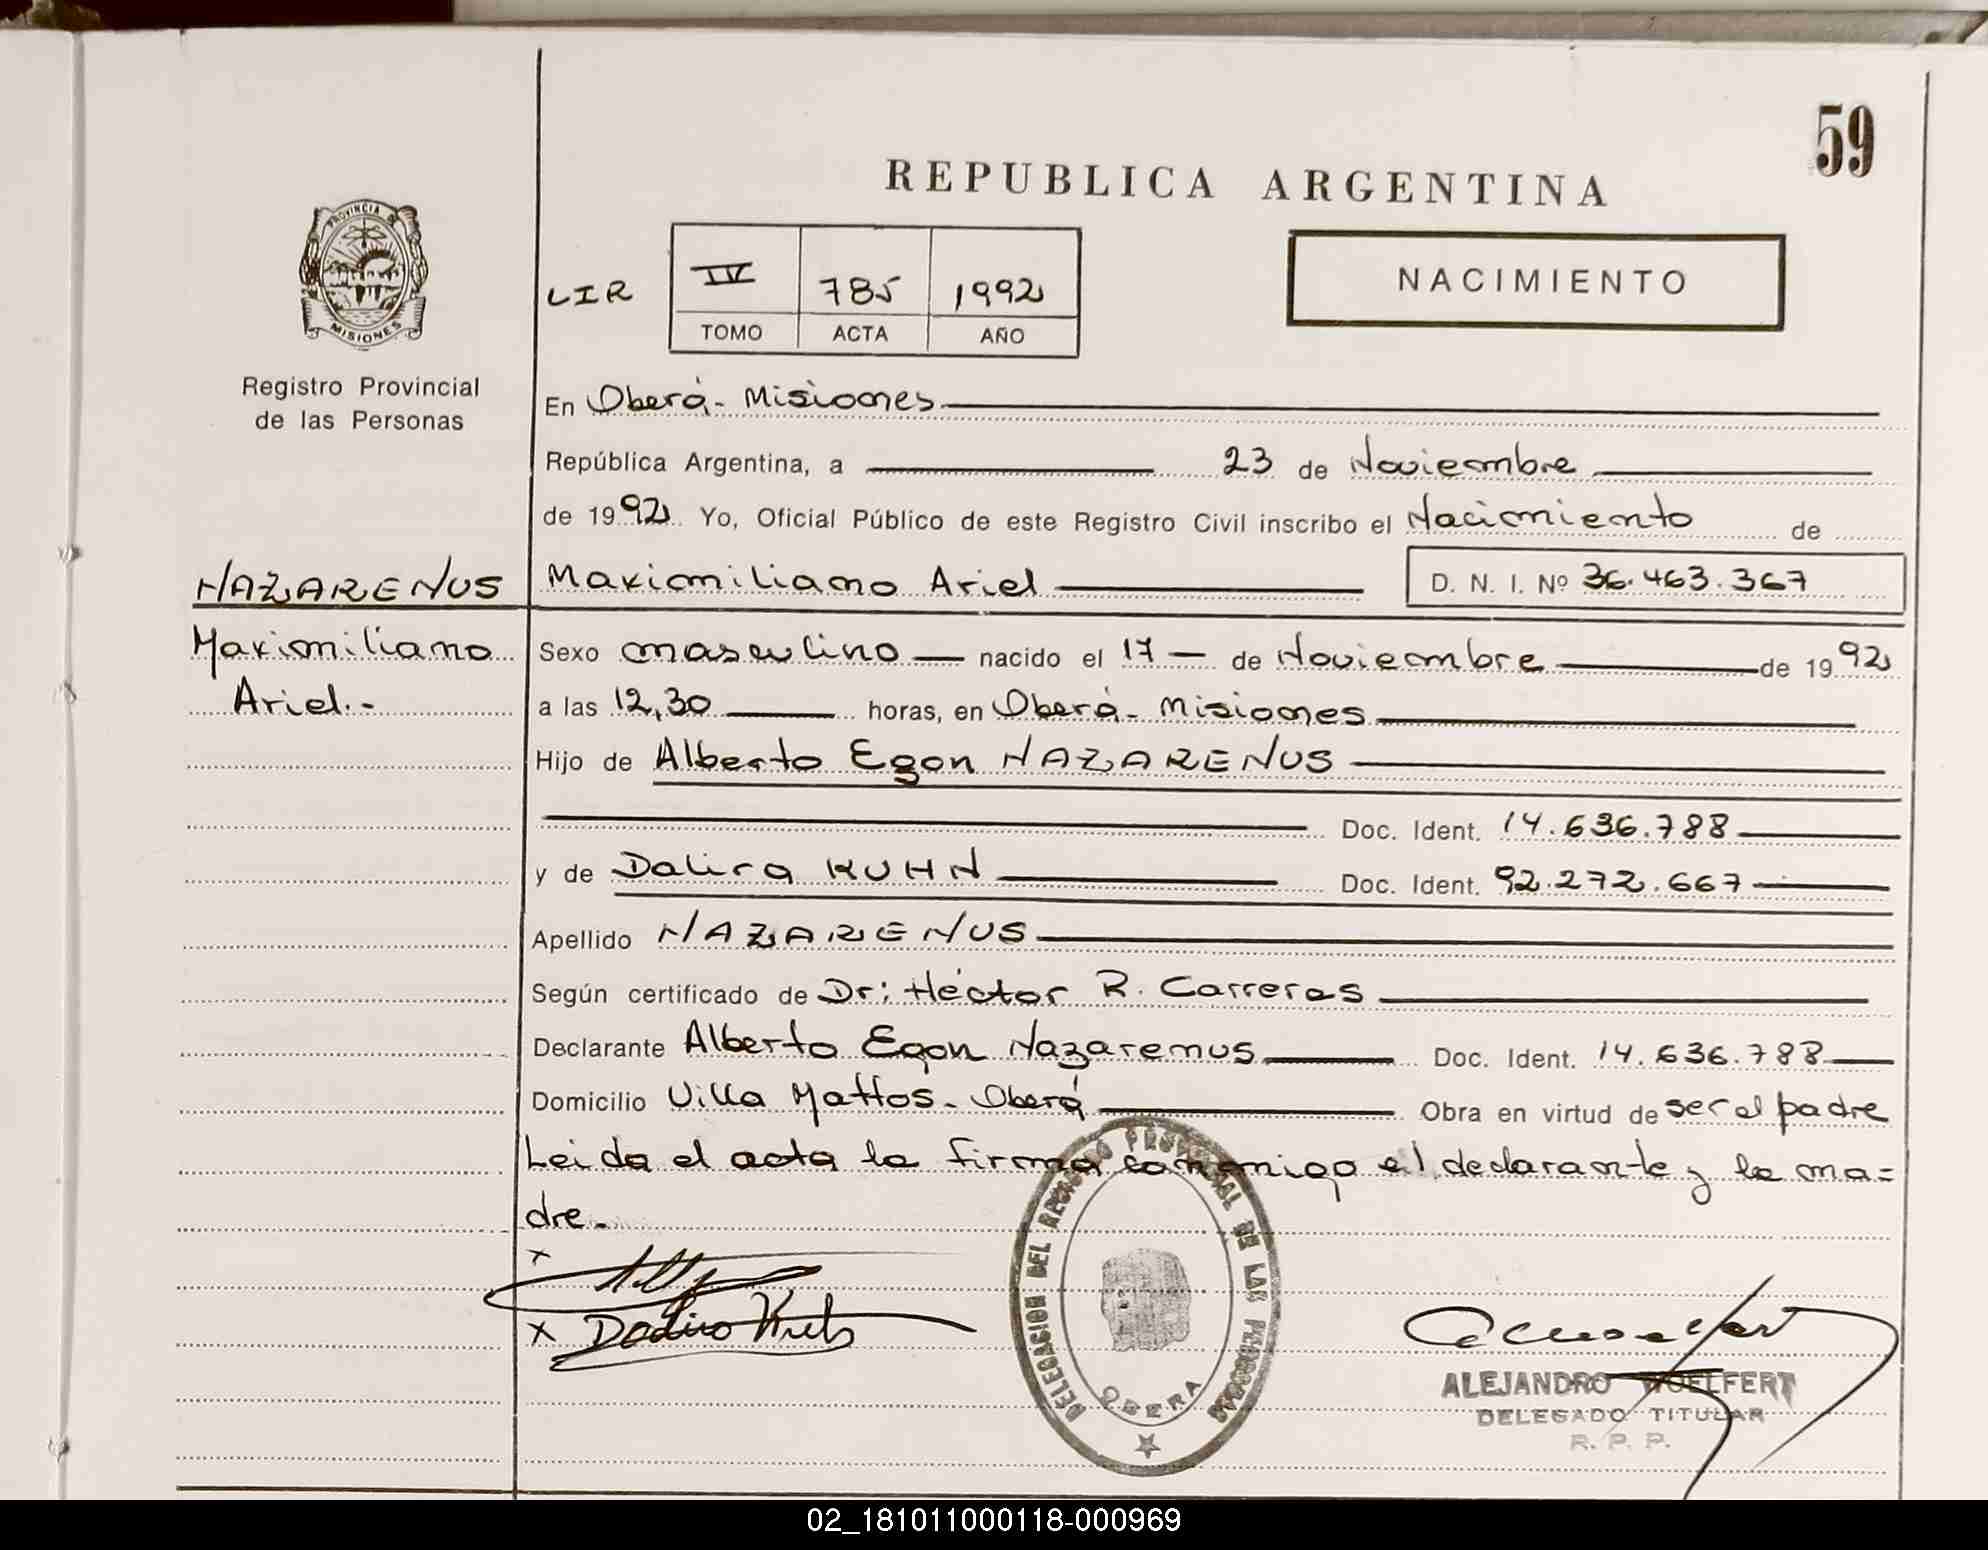 59
REPUBLICA ARGENTINA
PROVINCIA DE
MISIONES
Registro Provincial
de las Personas
LIR
IV 785 1992
TOMO ACTA AÑO
NACIMIENTO
En Oberá - Misiones
República Argentina, a 23 de Noviembre
de 1992 Yo, Oficial Público de este Registro Civil inscribo el Nacimiento de
NAZARENUS Maximiliano Ariel D. N. I. Nº 36.463.367
Maximiliano Sexo masculino nacido el 17 de Noviembre de 1992
Ariel.- a las 12,30 horas, en Oberá - Misiones
Hijo de Alberto Egon NAZARENUS
Doc. Ident. 14.636.788
y de Dalira KUHN Doc. Ident. 92.272.667
Apellido NAZARENUS
Según certificado de Dr: Héctor R. Carreras
Declarante Alberto Egon Nazarenus Doc. Ident. 14.636.788
Domicilio Villa Mattos - Oberá Obra en virtud de ser el padre
Leida el acta la firma conmigo el declarante y la ma=
dre.-
x
x
DELEGACION DEL REGISTRO PROVINCIAL DE LAS PERSONAS
OBERA
ALEJANDRO WOELFERT
DELEGADO TITULAR
R. P. P.
02_181011000118-000969